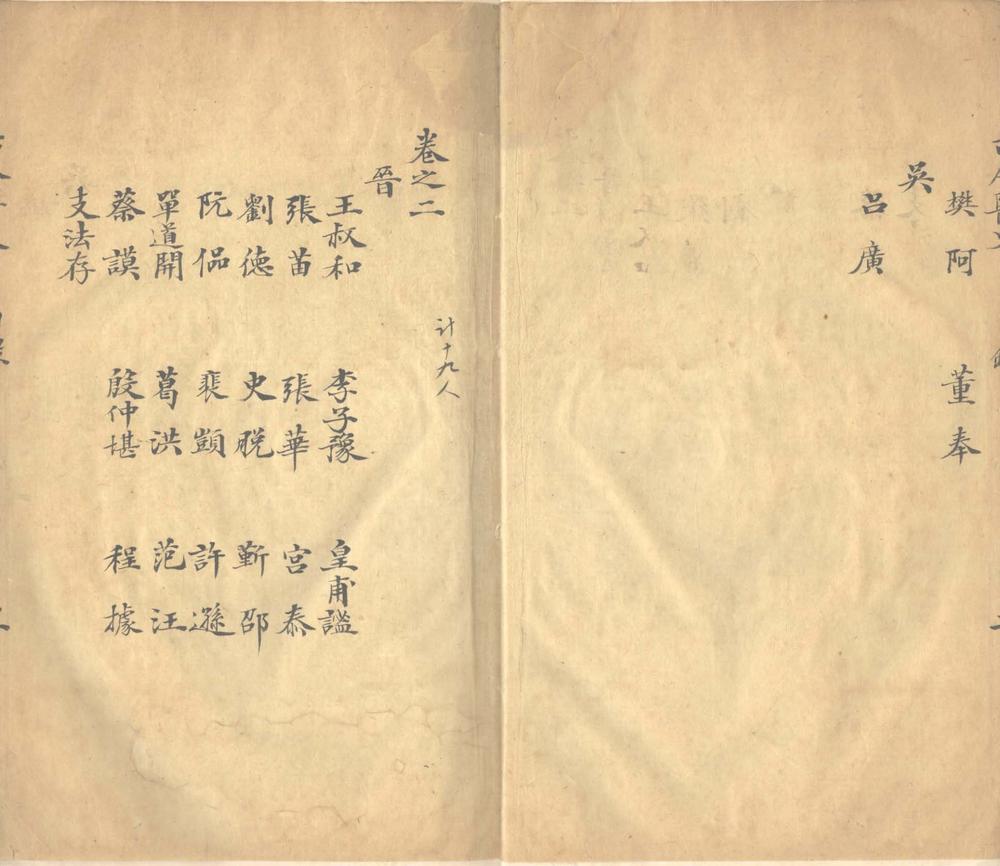 樊阿　董奉
吳
呂廣
計十九人
卷之二
晉
王叔和　李子豫　皇甫謐
張苗　張華　宮泰
劉德　史脫　靳邵
阮偘　裴顗　許遜
單道開　葛洪　范汪
蔡謨　殷仲堪　程據
支法存